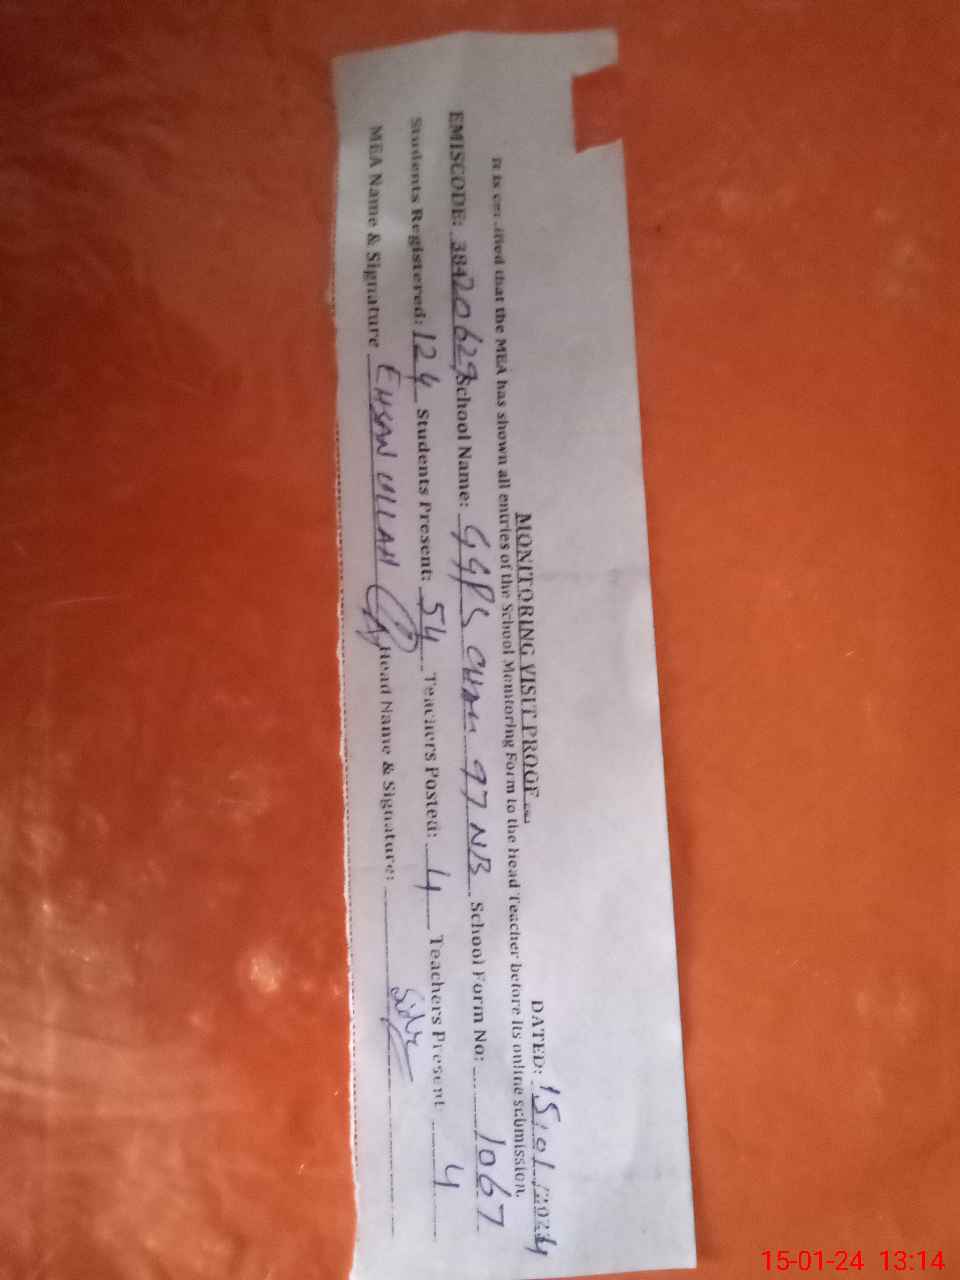 MONITORING VISIT PROOF
DATED: 15/01/2024
It is certified that the MEA has shown all entries of the School Monitoring Form to the head Teacher before its online submission.
EMISCODE: 38420629 School Name: GGPS CHAK 97 NB School Form No: 1067
Students Registered: 124 Students Present: 54 Teachers Posted: 4 Teachers Present 4
MEA Name & Signature EHSAN ULLAH Head Name & Signature:
15-01-24 13:14